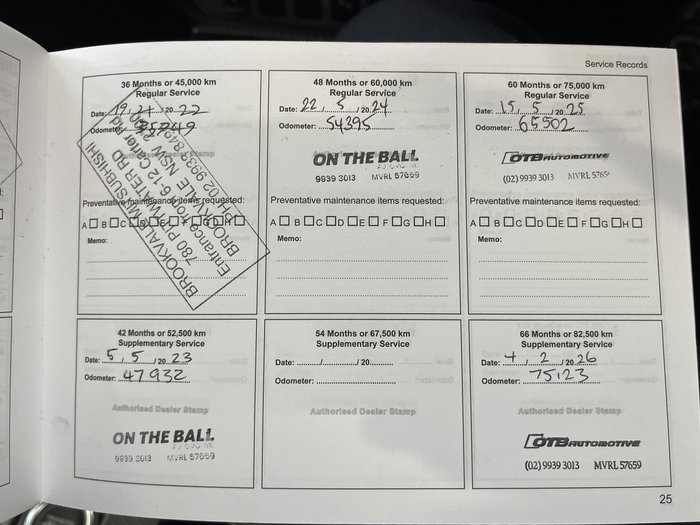 Service Records
36 Months or 45,000 km
Regular Service
Date: 19, 21, 20 22
Odometer:
BROOKVALE MITSUBISHI
780 PITTWATER RD
Entrance from 6-12
BROOKVALE NSW
PH: 02 9938
Preventative maintenance items requested:
A B C
Memo:
48 Months or 60,000 km
Regular Service
Date: 22, 5, 20 24
Odometer: 54395
ON THE BALL
9939 3013 MVRL 57659
Preventative maintenance items requested:
A B C D E F G H
Memo:
60 Months or 75,000 km
Regular Service
Date: 15, 5, 20 25
Odometer: 65502
OTB AUTOMOTIVE
(02) 9939 3013 MVRL 5765
Preventative maintenance items requested:
A B C D E F G H
Memo:
42 Months or 52,500 km
Supplementary Service
Date: 5, 5, 20 23
Odometer: 47932
Authorised Dealer Stamp
ON THE BALL
9939 3013 MVRL 57659
54 Months or 67,500 km
Supplementary Service
Date: / / 20
Odometer:
Authorised Dealer Stamp
66 Months or 82,500 km
Supplementary Service
Date: 4, 2, 20 26
Odometer: 75123
Authorised Dealer Stamp
OTB AUTOMOTIVE
(02) 9939 3013 MVRL 57659
25